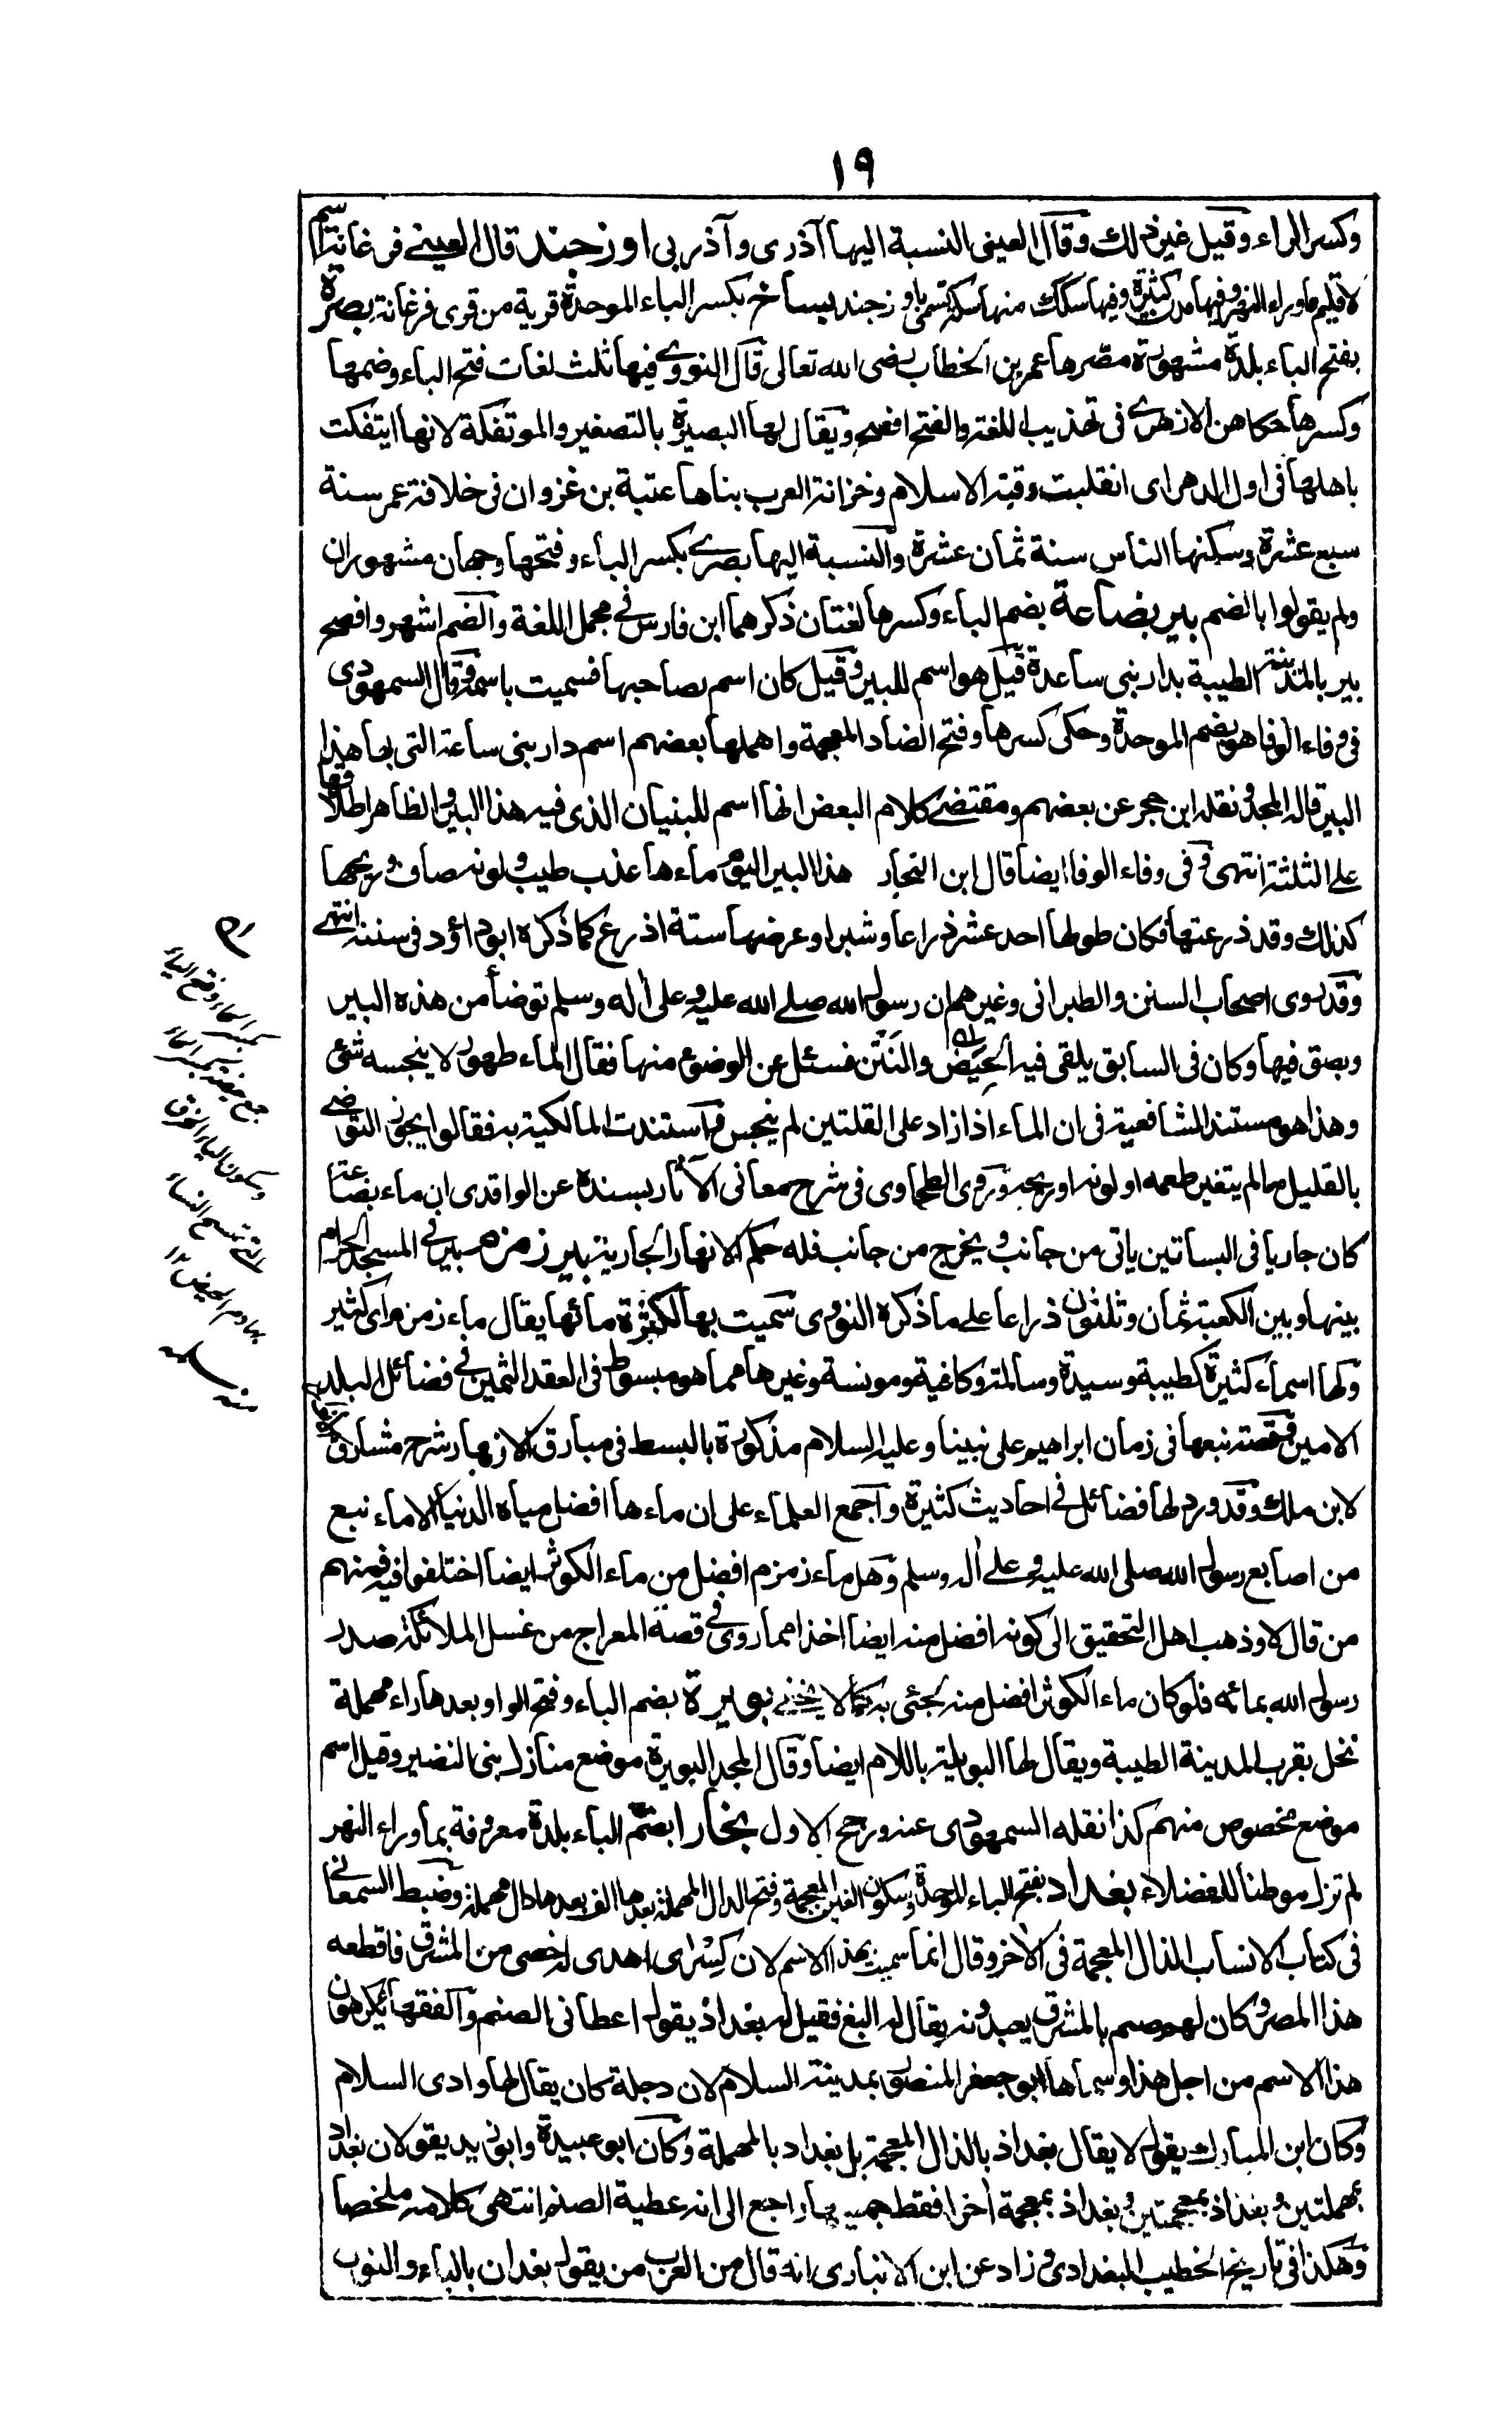 ١٩
وكسر الراء وقيل غير ذلك وقال العينى النسبة اليها آذرى وآذربى اوزجند قال العينے فرغانة اسم
لاقليم ماوراء النهر وفيها مدن كثيرة وفيها سكك منها سكة تسمى باوزجند بيساخر بكسر الباء الموحدة قرية من قرى فرغانة بصرة
بفتح الباء بلدة مشهورة مصرها عمر بن الخطاب رضى الله تعالى قال النووے وفيها ثلث لغات فتح الباء وضمها
وكسرها حكاهن الازهرے فى تهذيب اللغة والفتح افصح ويقال لها البصيرة بالتصغير والموتفكة لانها ايتفكت
باهلها فى اول الدهر اى انقلبت وقبة الاسلام وخزانة العرب بناها عتبة بن غزوان فى خلافة عمر سنة
سبع عشرة وسكنها الناس سنة ثمان عشرة والنسبة اليها بصرے بكسر الباء وفتحها وجهان مشهوران
ولم يقولوا بالضم بير بضاعة بضم الباء وكسرها لغتان ذكرهما ابن فارس فے مجمل اللغة والضم اشهر وافصح
بير بالمدينة الطيبة بدار بنى ساعدة قيل هو اسم للبير وقيل كان اسم لصاحبها فسميت باسمه وقال السمهودى
فى وفاء الوفا هو بضم الموحدة وحكى كسرها وفتح الضاد المعجمة واهملها بعضهم اسم دار بنى ساعة التى بها هذا
البير قاله المجد ونقله ابن حجر عن بعضهم ومقتضے كلام البعض انها اسم للبنيان الذى فيه هذا البير والظاهر اطلاقها
علے الثلثة انتهى وفى وفاء الوفا ايضا قال ابن النجار هذا البير اليوم ماءها عذب طيب ولونه صاف وريحها
كذلك وقد ذرعتها فكان طولها احد عشر ذراعا وشبرا وعرضها ستة اذرع كما ذكره ابوداؤد فى سننه انتهے
وقد روى اصحاب السنن والطبرانى وغيرهم ان رسول الله صلے الله عليه وعلى أله وسلم توضأ من هذه البير
وبصق فيها وكان فى السابق يلقى فيه الحِيَض والنَتَن فسئل عن الوضوء منها فقال الماء طهور لا ينجسه شئ
وهذا هو مستند الشافعية فى ان الماء اذا زاد على القلتين لم ينجس واستندت المالكية به فقالوا يجوز التوضے
بالقليل مالم يتغير طعمه او لونه او ريحه وروى الطحاوى فى شرح معانى الآثار بسنده عن الواقدى ان ماء بضاعة
كان جاريا فى البساتين ياتى من جانب ويخرج من جانب فله حكم الانهار الجارية بير زمزم بير فى المسجد الحرام
بينها وبين الكعبة ثمان وثلثون ذراعا علے ماذكره النووى سميت بها لكثرة مائها يقال ماء زمزم اى كثير
ولها اسماء كثيرة كطيبة وسيدة وسالمة وكاغية ومونسة وغيرها مما هو مبسوط فى العقد الثمين فے فضائل البلد
الامين وقصة نبعها فى زمان ابراهيم على نبينا وعليه السلام مذكورة بالبسط فى مبارق الازهار شرح مشارق الانوار
لابن ملك وقد ورد لها فضائل فے احاديث كثيرة واجمع العلماء على ان ماءها افضل مياه الدنيا الا ماء نبع
من اصابع رسول الله صلى الله عليه وعلے أله وسلم وهل ماء زمزم افضل من ماء الكوثر ايضا اختلفوا فيه فمنهم
من قال لا وذهب اهل التحقيق الى كونه افضل منه ايضا اخذا مما روى فے قصة المعراج من غسل الملائكة صدر
رسول الله بمائه فلو كان ماء الكوثر افضل منه لجئى به كما لا يخفے بويرة بضم الباء وفتح الواو بعدها راء مهملة
نخل بقرب المدينة الطيبة ويقال لها البويلة باللام ايضا وقال المجد البويرة موضع منازل بنى النضير وقيل اسم
موضع مخصوص منهم كذا نقله السمهودى عنه ورجح الاول بخارا بضم الباء بلدة معروفة بماوراء النهر
لم تزل موطنا للفضلاء بغداد بفتح الباء الموحدة وسكون الغين المعجمة وفتح الدال المهملة بعدها الف بعدها دال مهملة وضبط السمعانے
فى كتاب الانساب الذال المعجمة فى الأخر وقال انما سميت بهذا الاسم لان كِسْرٰى اهدى له خصى من المشرق فاقطعه
هذا المصر وكان لهم صنم بالمشرق يعبدونه يقال له البغ فقيل له بغداد يقول اعطانى الصنم والفقهاء يكرهون
هذا الاسم من اجل هذا وسماها ابوجعفر المنصور بمدينة السلام لان دجلة كان يقال لها وادى السلام
وكان ابن المبارك يقول لا يقال بغداذ بالذال المعجمة بل بغداد بالمهملة وكان ابوعبيدة وابوزيد يقولان بغداد
بمهملتين وبغذاذ بمعجمتين وبغداذ بمعجمة أخرا فقط جميعها راجع الى انه عطية الصنم انتهى كلامه ملخصا
وهكذا فى تاريخ الخطيب البغدادى وزاد عن ابن الانبارى انه قال من العرب من يقول بغدان بالباء والنون
بكسر الحاء وفتح الياء
جمع حيضة بكسر الحاء
وسكون الياء الخرق
التى تمسح النساء
بها دم الحيض ١٢
منه